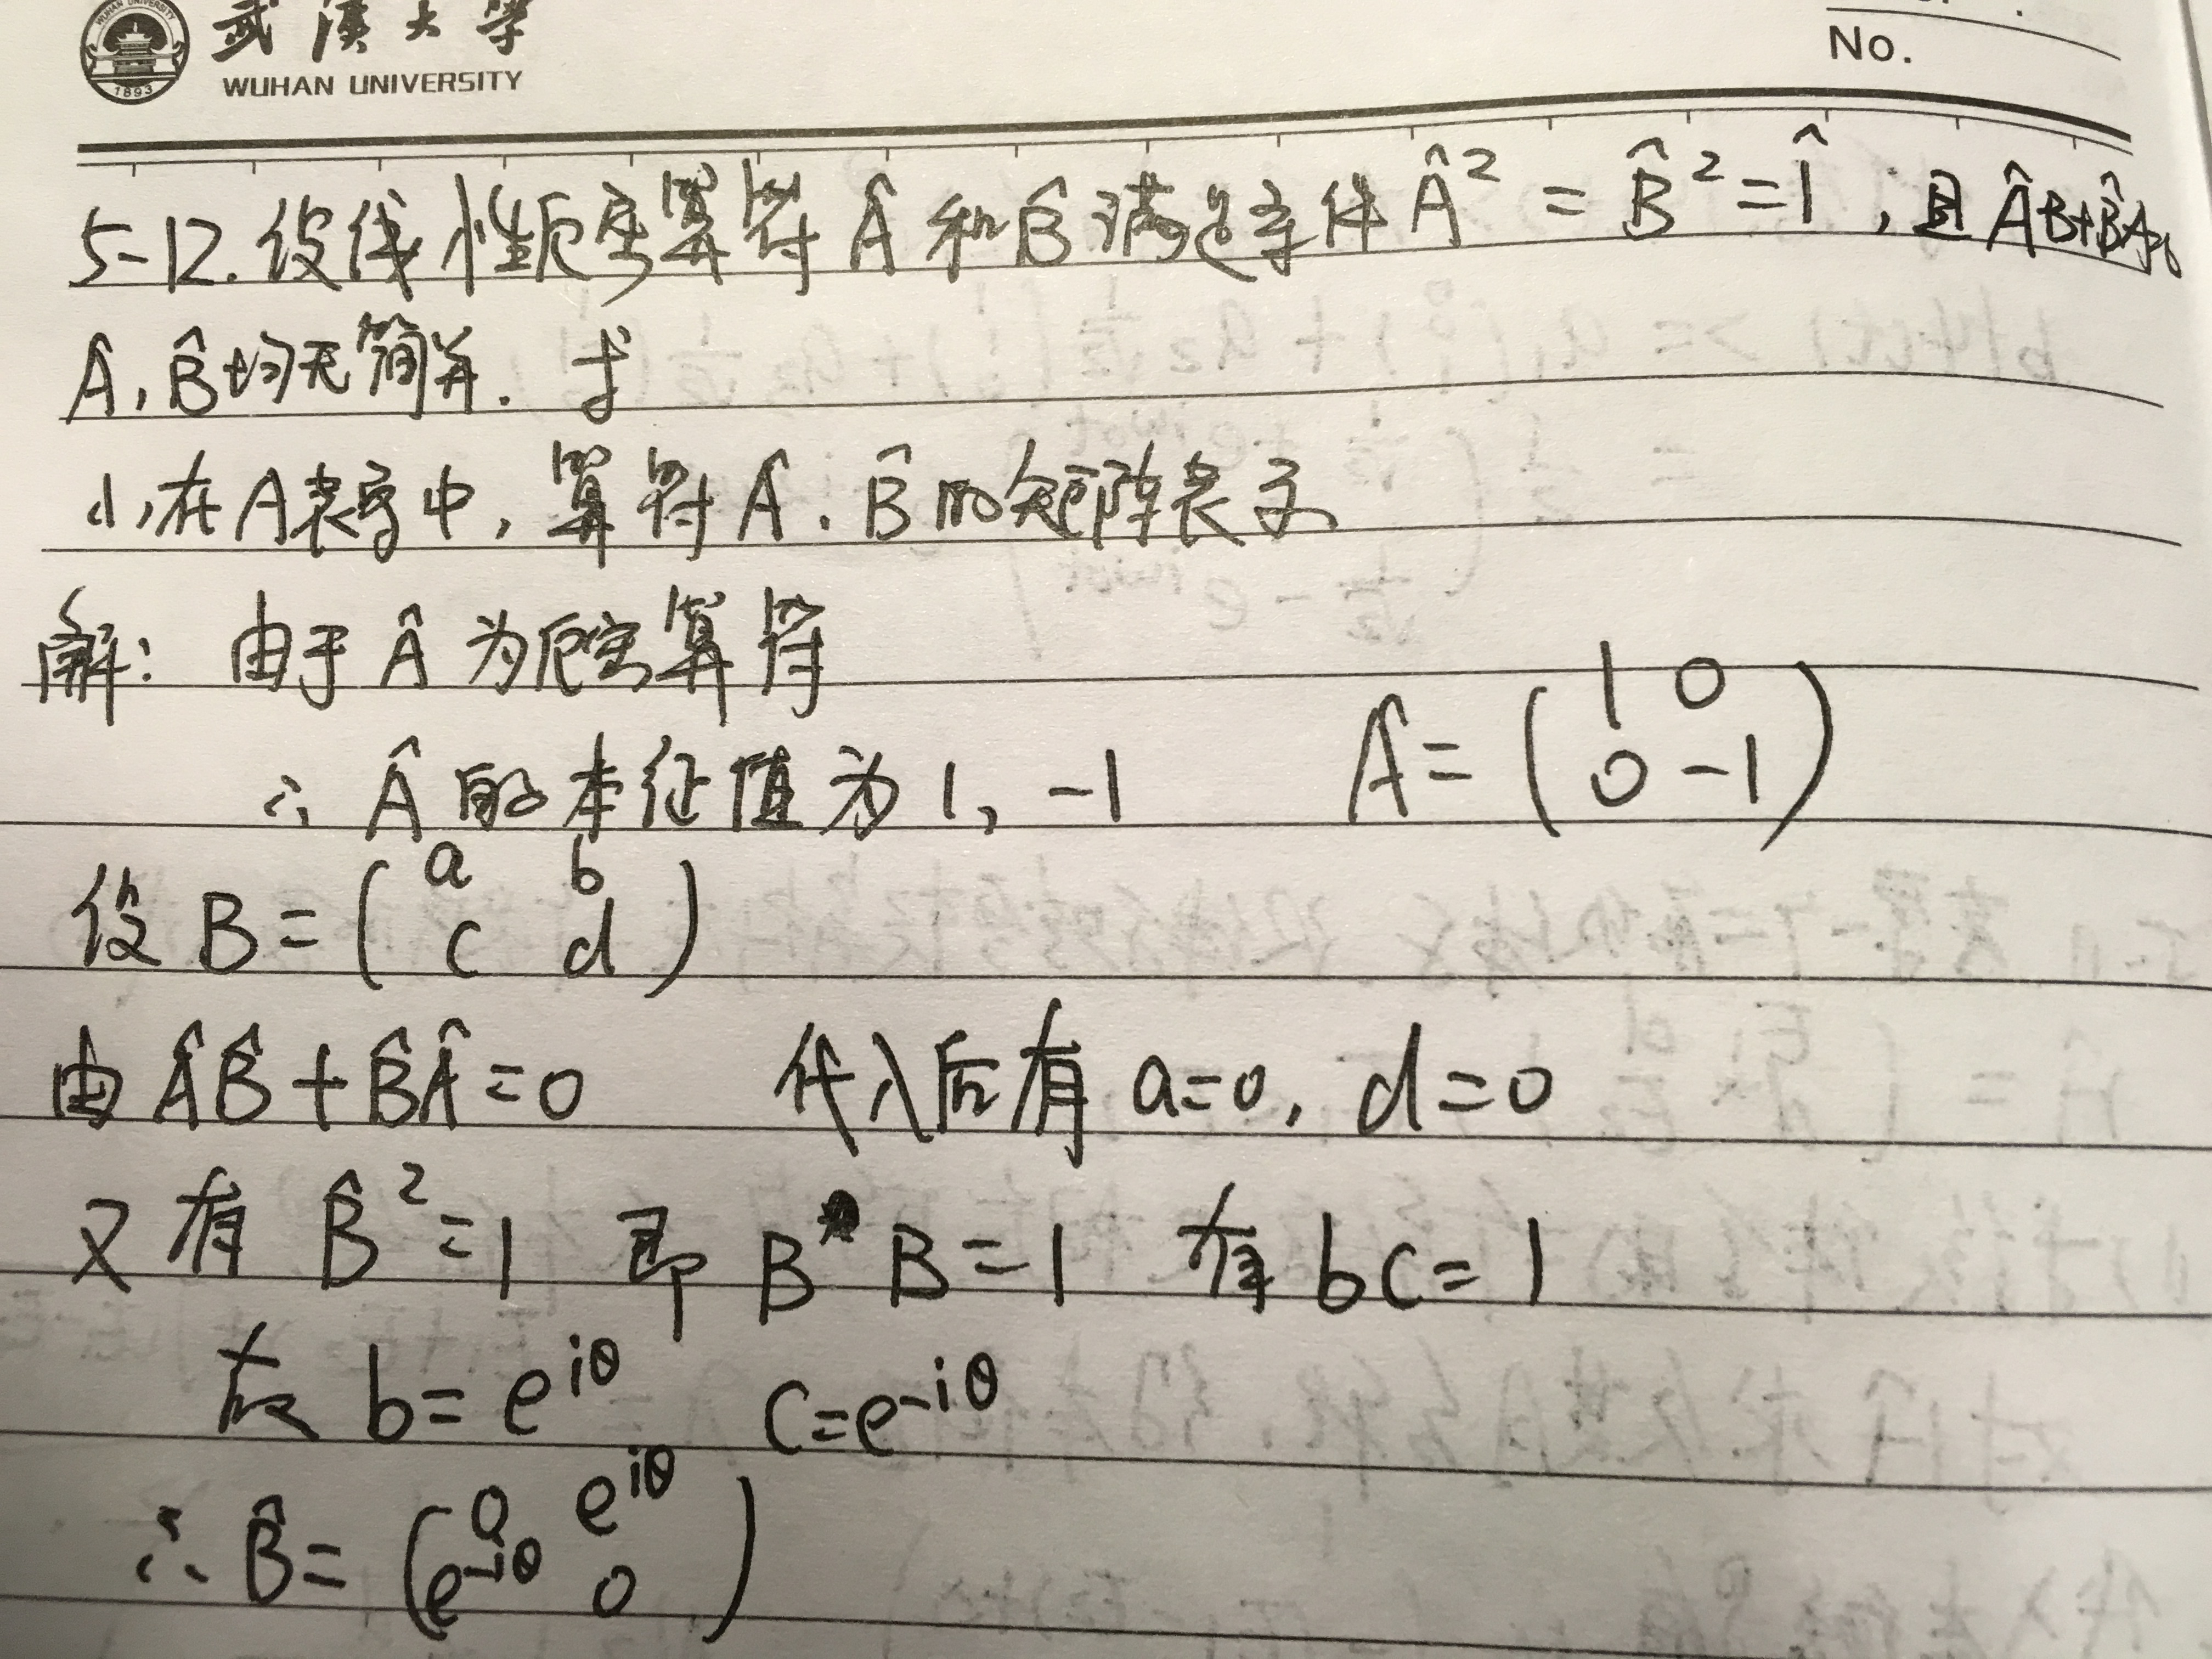 武漢大學
WUHAN UNIVERSITY
WUHAN UNIVERSITY
1893
No.
5-12. 设线性厄密算符 Â 和 B̂ 满足条件 Â² = B̂² = 1̂, 且 ÂB+B̂A=0
Â, B̂ 均无简并. 求
(1) 在 A 表象中, 算符 Â、B̂ 的矩阵表示
解: 由于 Â 为厄密算符
∴ Â 的本征值为 1, -1 Â = ( 1 0
0 -1 )
设 B = ( a b
c d )
由 ÂB̂ + B̂Â = 0 代入后有 a=0, d=0
又有 B̂² = 1 即 B*B = 1 有 bc = 1
故 b = e^{iθ} c = e^{-iθ}
∴ B̂ = ( 0 e^{iθ}
e^{-iθ} 0 )